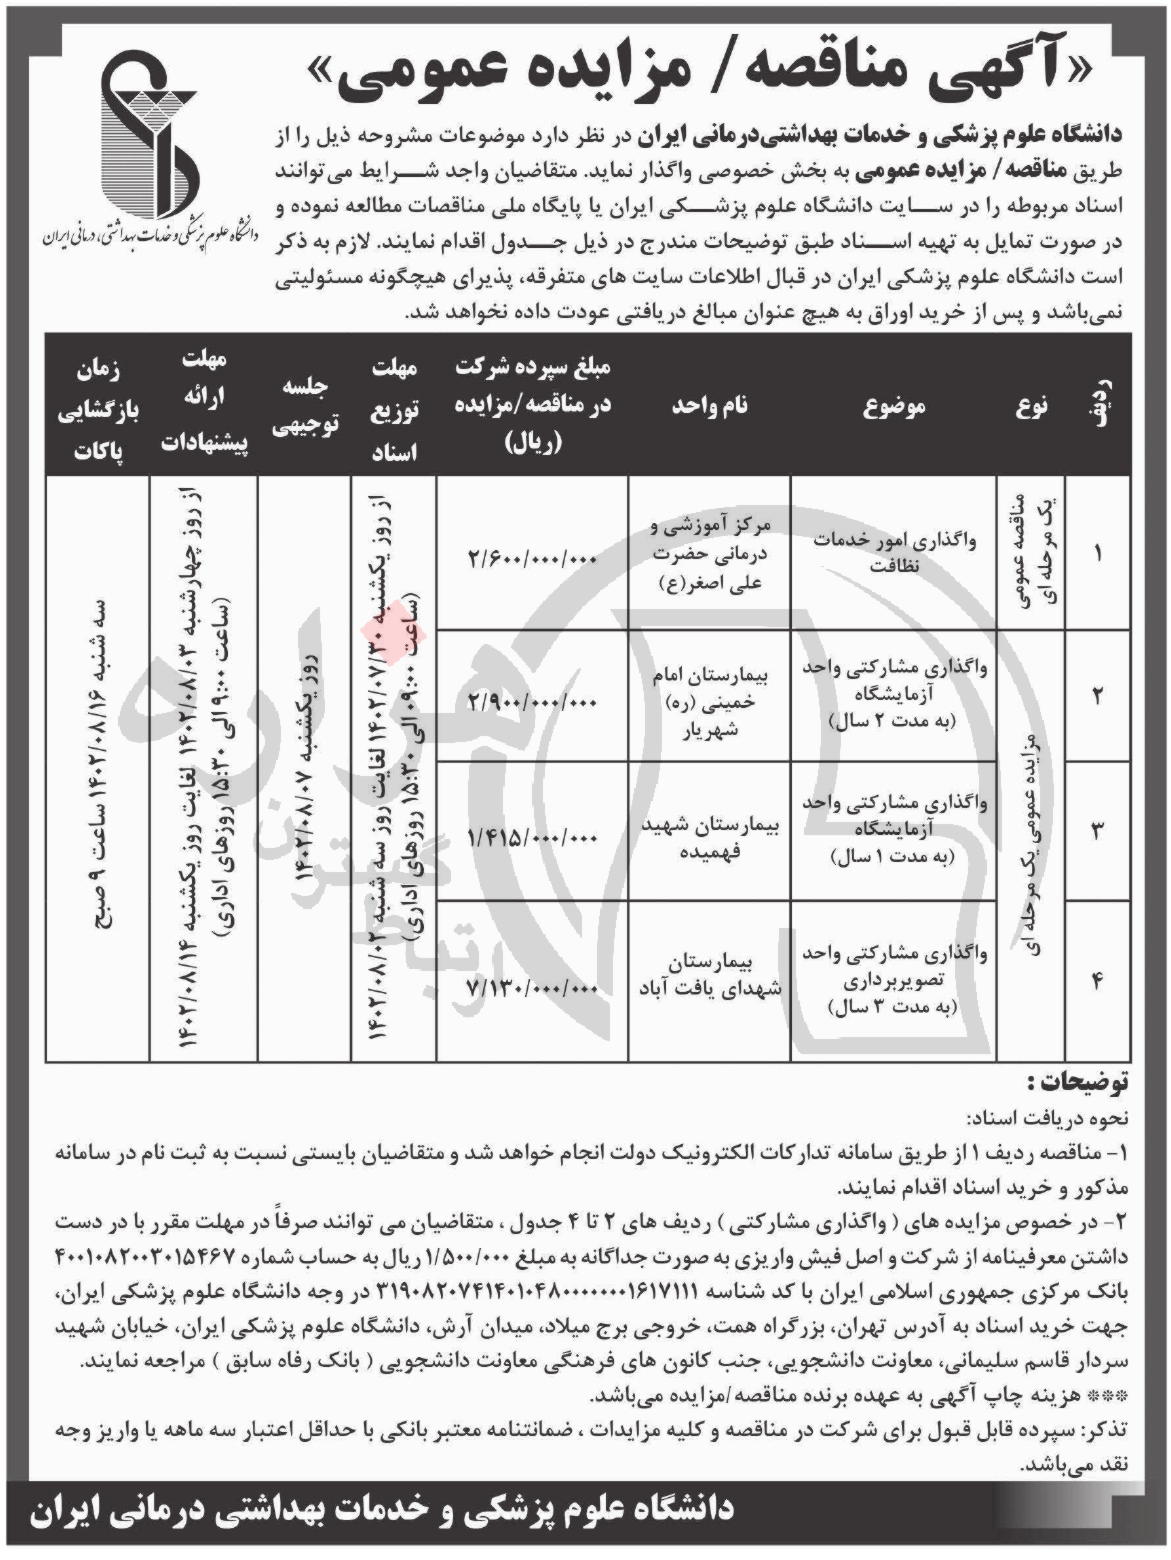 «آگهی مناقصه/ مزایده عمومی»
دانشگاه علوم پزشکی و خدمات بهداشتی، درمانی ایران
دانشگاه علوم پزشکی و خدمات بهداشتی‌درمانی ایران در نظر دارد موضوعات مشروحه ذیل را از
طریق مناقصه/ مزایده عمومی به بخش خصوصی واگذار نماید. متقاضیان واجد شرایط می‌توانند
اسناد مربوطه را در سایت دانشگاه علوم پزشکی ایران یا پایگاه ملی مناقصات مطالعه نموده و
در صورت تمایل به تهیه اسناد طبق توضیحات مندرج در ذیل جدول اقدام نمایند. لازم به ذکر
است دانشگاه علوم پزشکی ایران در قبال اطلاعات سایت های متفرقه، پذیرای هیچگونه مسئولیتی
نمی‌باشد و پس از خرید اوراق به هیچ عنوان مبالغ دریافتی عودت داده نخواهد شد.
ردیف
نوع
موضوع
نام واحد
مبلغ سپرده شرکت
در مناقصه/مزایده
(ریال)
مهلت
توزیع
اسناد
جلسه
توجیهی
مهلت
ارائه
پیشنهادات
زمان
بازگشایی
پاکات
۱
مناقصه عمومی
یک مرحله ای
واگذاری امور خدمات
نظافت
مرکز آموزشی و
درمانی حضرت
علی اصغر(ع)
۲/۶۰۰/۰۰۰/۰۰۰
از روز یکشنبه ۱۴۰۲/۰۷/۳۰ لغایت روز سه شنبه ۱۴۰۲/۰۸/۰۲
(ساعت ۰۹:۰۰ الی ۱۵:۳۰ روزهای اداری)
روز یکشنبه ۱۴۰۲/۰۸/۰۷
از روز چهارشنبه ۱۴۰۲/۰۸/۰۳ لغایت روز یکشنبه ۱۴۰۲/۰۸/۱۴
(ساعت ۹:۰۰ الی ۱۵:۳۰ روزهای اداری)
سه شنبه ۱۴۰۲/۰۸/۱۶ ساعت ۹ صبح
۲
مزایده عمومی یک مرحله ای
واگذاری مشارکتی واحد
آزمایشگاه
(به مدت ۲ سال)
بیمارستان امام
خمینی (ره)
شهریار
۲/۹۰۰/۰۰۰/۰۰۰
۳
واگذاری مشارکتی واحد
آزمایشگاه
(به مدت ۱ سال)
بیمارستان شهید
فهمیده
۱/۴۱۵/۰۰۰/۰۰۰
۴
واگذاری مشارکتی واحد
تصویربرداری
(به مدت ۳ سال)
بیمارستان
شهدای یافت آباد
۷/۱۳۰/۰۰۰/۰۰۰
هزاره
ارتباط گستران
توضیحات :
نحوه دریافت اسناد:
۱- مناقصه ردیف ۱ از طریق سامانه تدارکات الکترونیک دولت انجام خواهد شد و متقاضیان بایستی نسبت به ثبت نام در سامانه
مذکور و خرید اسناد اقدام نمایند.
۲- در خصوص مزایده های ( واگذاری مشارکتی ) ردیف های ۲ تا ۴ جدول ، متقاضیان می توانند صرفاً در مهلت مقرر با در دست
داشتن معرفینامه از شرکت و اصل فیش واریزی به صورت جداگانه به مبلغ ۱/۵۰۰/۰۰۰ ریال به حساب شماره ۴۰۰۱۰۸۲۰۰۳۰۱۵۴۶۷
بانک مرکزی جمهوری اسلامی ایران با کد شناسه ۳۱۹۰۸۲۰۷۴۱۴۰۱۰۴۸۰۰۰۰۰۰۰۱۶۱۷۱۱۱ در وجه دانشگاه علوم پزشکی ایران،
جهت خرید اسناد به آدرس تهران، بزرگراه همت، خروجی برج میلاد، میدان آرش، دانشگاه علوم پزشکی ایران، خیابان شهید
سردار قاسم سلیمانی، معاونت دانشجویی، جنب کانون های فرهنگی معاونت دانشجویی ( بانک رفاه سابق ) مراجعه نمایند.
*** هزینه چاپ آگهی به عهده برنده مناقصه/مزایده می‌باشد.
تذکر: سپرده قابل قبول برای شرکت در مناقصه و کلیه مزایدات ، ضمانتنامه معتبر بانکی با حداقل اعتبار سه ماهه یا واریز وجه
نقد می‌باشد.
دانشگاه علوم پزشکی و خدمات بهداشتی درمانی ایران